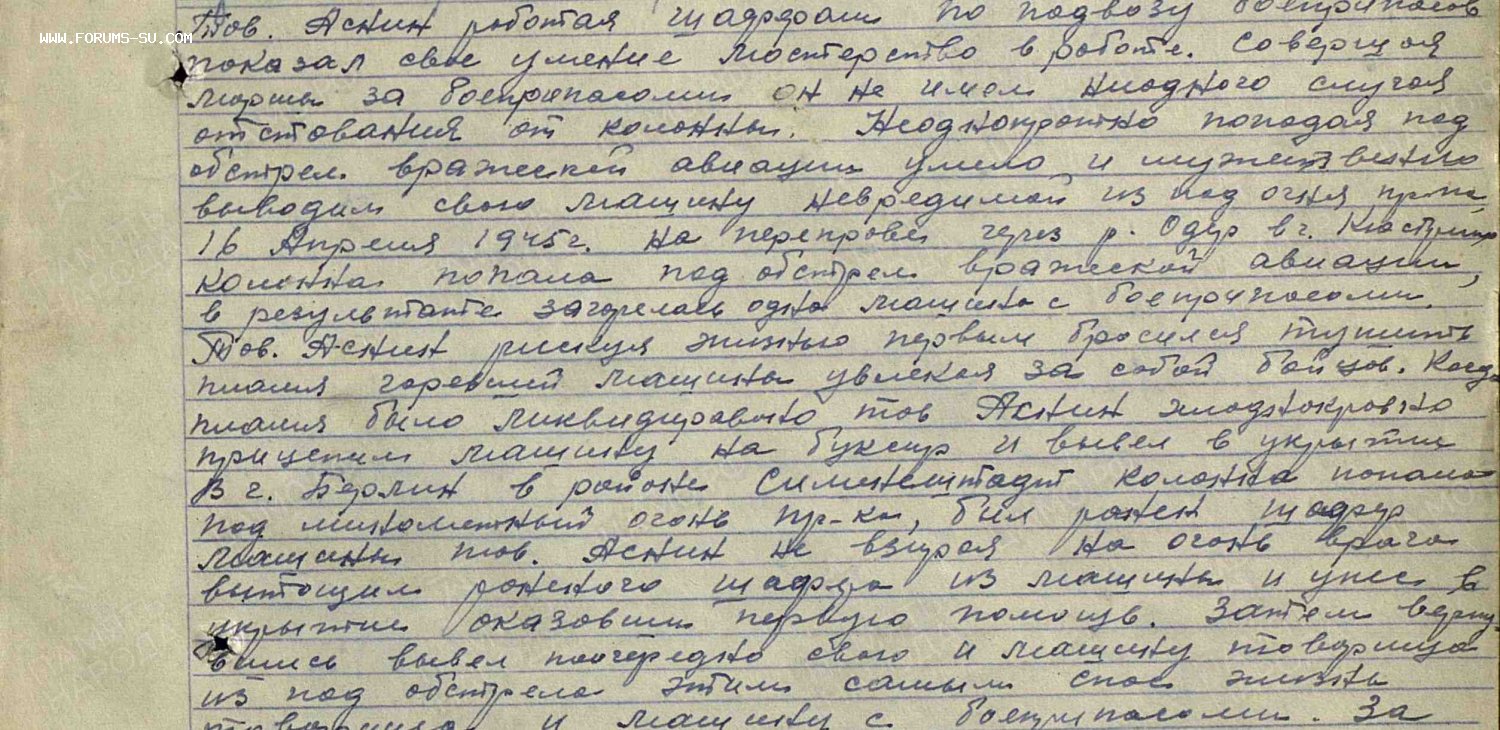 WWW.FORUMS-SU.COM
Тов. Аснин работая шафером по подвозу боеприпасов
показал свое умение мостерство в работе. Совершая
марши за боеприпасоми он не имел ниодного случая
отстования от колонны. Неоднократно попадая под
обстрел вражеской авиации умело и мужественно
выводил свою машину невредимой из под огня пр-ка,
16 Апреля 1945г. на переправе через р. Одер в г. Кюстрин
колонна попала под обстрел вражеской авиации,
в результате загорелась одна машина с боеприпасоми.
Тов. Аснин рискуя жизнью первым бросился тушить
пламя горевшей машины увлекая за собой бойцов. Когда
пламя было ликвидировано тов Аснин хлоднокровно
прицепил машину на буксир и вывел в укрытие
В г. Берлин в районе Сименштадт колонна попала
под минометный огонь пр-ка, был ранен шафер
машины тов. Аснин не взирая на огонь врага
вытощил раненого шафера из машины и унес в
укрытие оказовши первую помощь. Затем верну-
вшись вывел поочередно свою и машину товарища
из под обстрела этим самым спас жизнь
товарища и машину с боеприпасоми. За